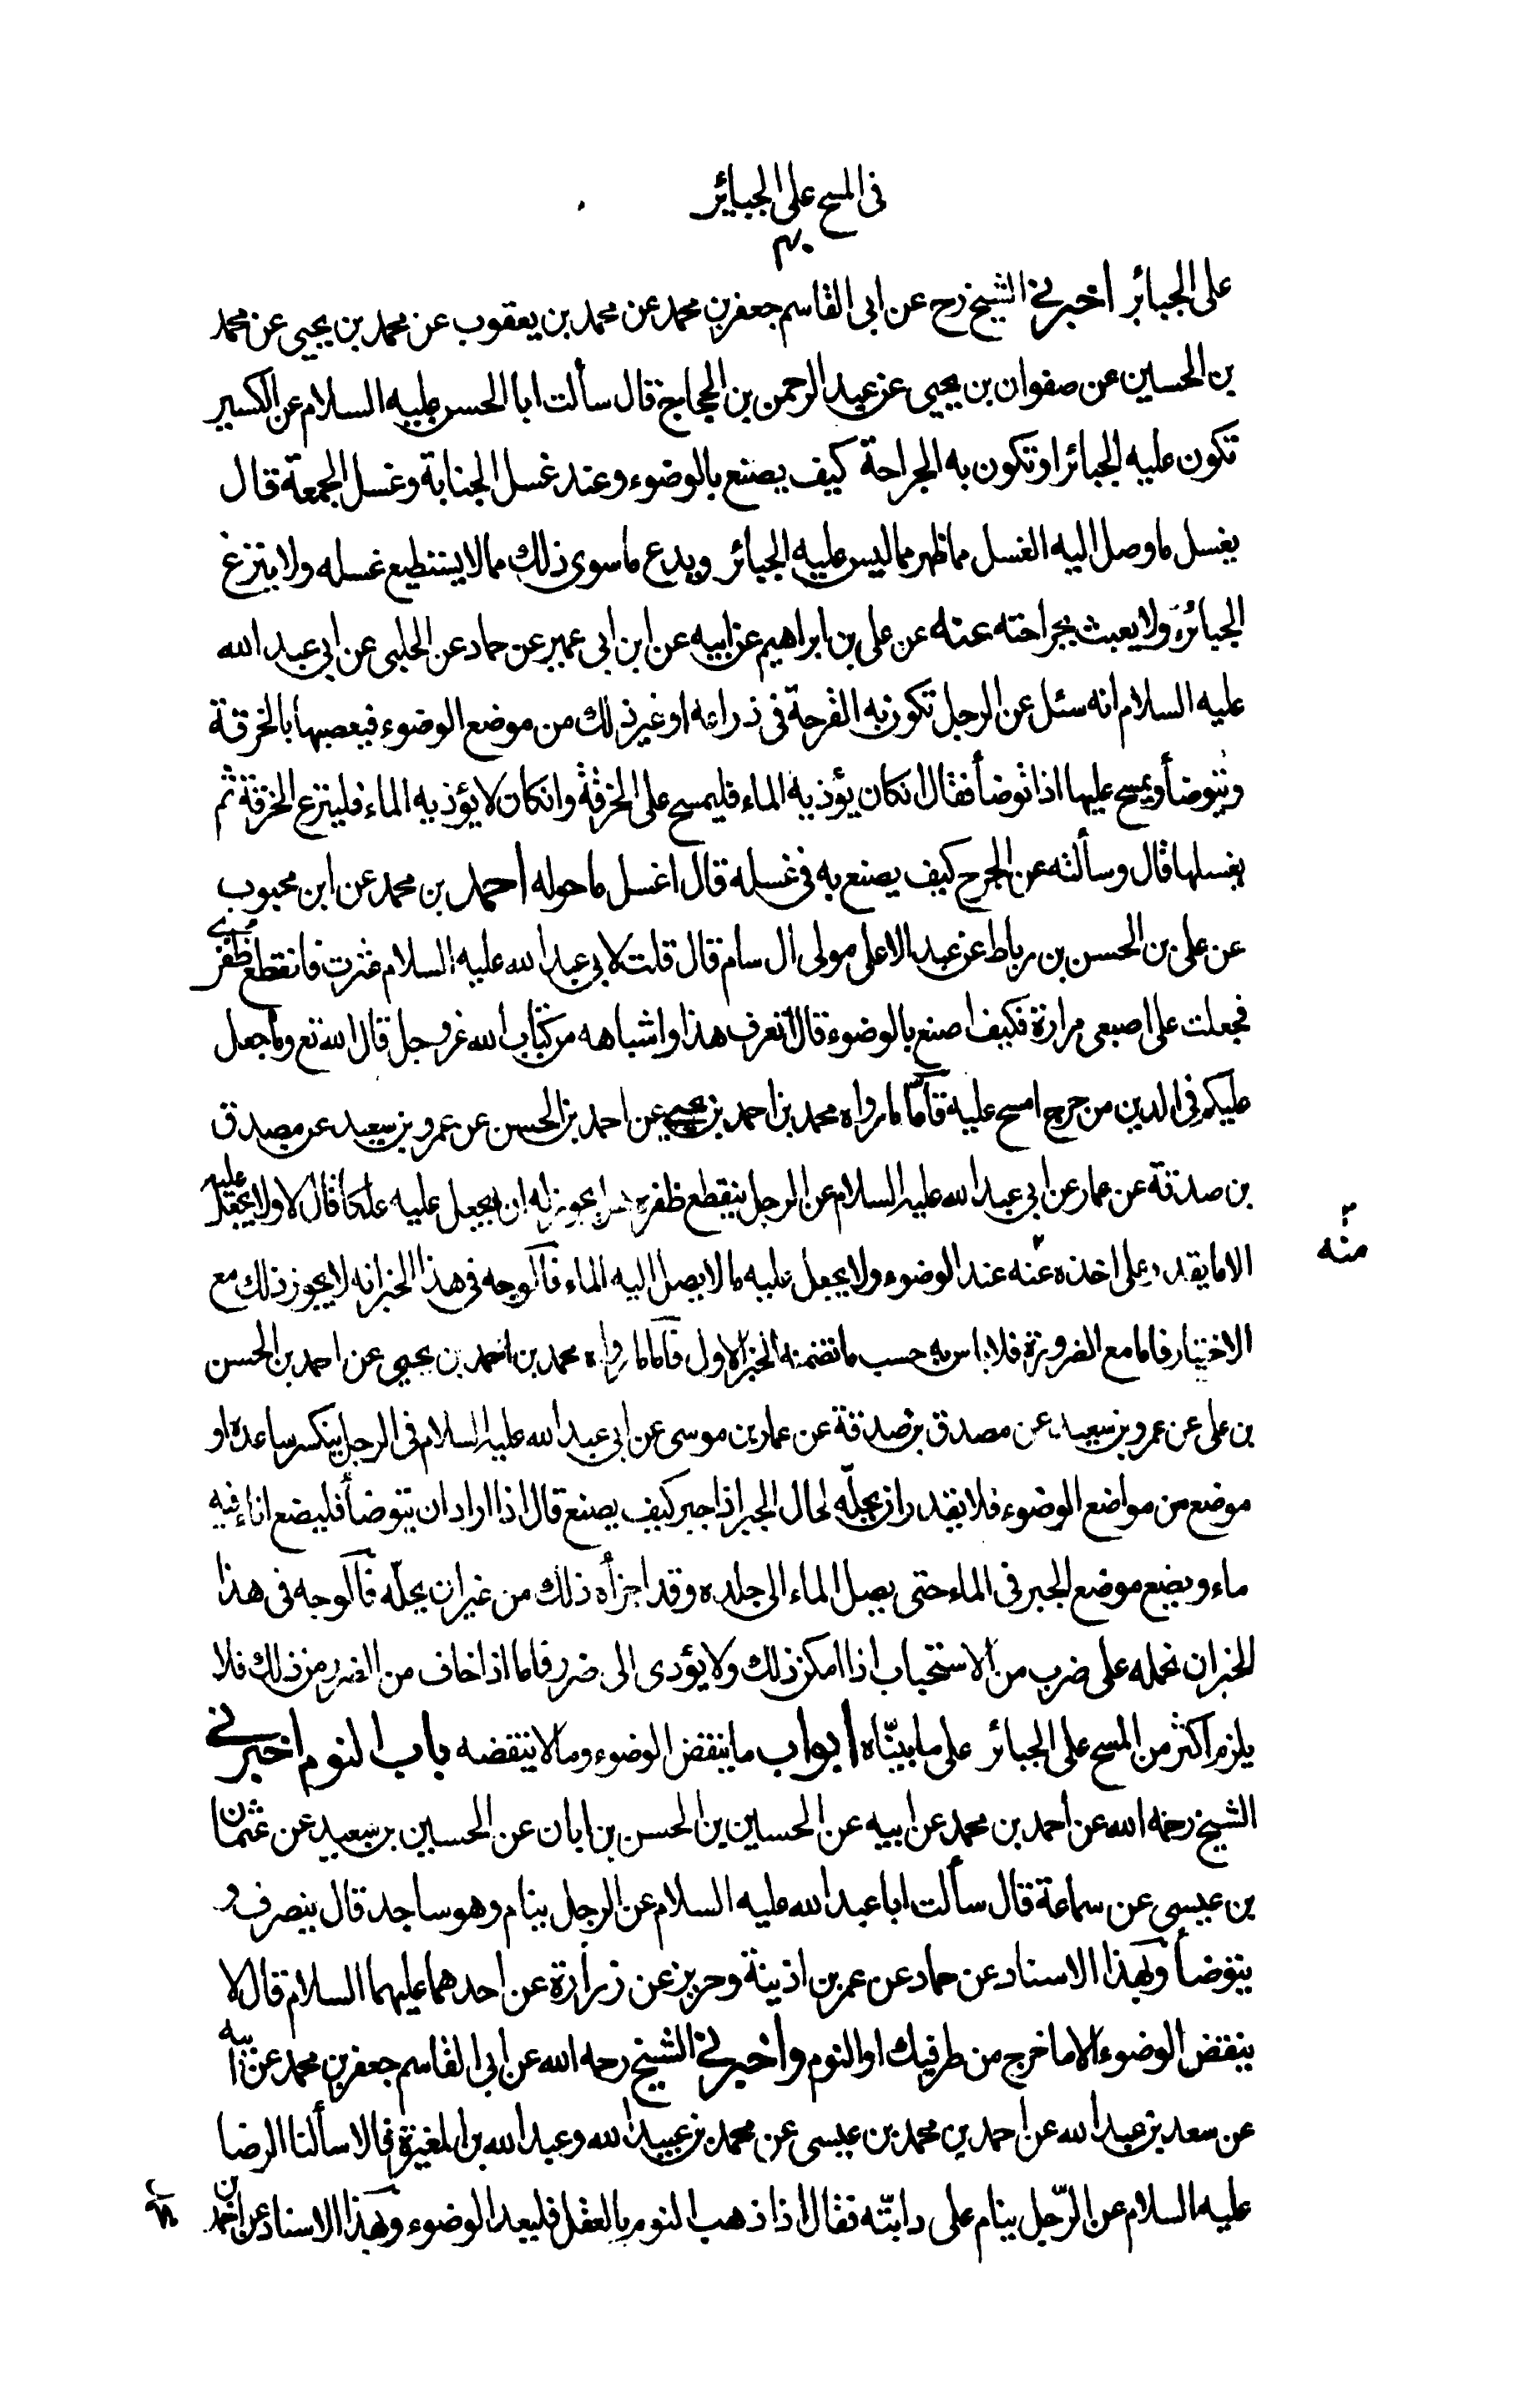 فى المسح على الجبائر
على الجبائر اخبرنى الشيخ رح عن ابى القاسم جعفر بن محمد عن محمد بن يعقوب عن محمد بن يحيى عن محمد
بن الحسين عن صفوان بن يحيى عن عبد الرحمن بن الحجاج قال سألت ابا الحسن عليه السلام عن الكسير
تكون عليه الجبائر او تكون به الجراحة كيف يصنع بالوضوء وعند غسل الجنابة وغسل الجمعة قال
يغسل ما وصل اليه الغسل مما ظهر مما ليس عليه الجبائر ويدع ما سوى ذلك مما لا يستطيع غسله ولا ينزع
الجبائر ولا يعبث بجراحته عنه عن على بن ابراهيم عن ابيه عن ابن ابى عمير عن حماد عن الحلبى عن ابى عبد الله
عليه السلام انه سئل عن الرجل تكون به القرحة فى ذراعه او غير ذلك من موضع الوضوء فيعصبها بالخرقة
ويتوضأ ويمسح عليها اذا توضأ فقال ان كان يؤذيه الماء فليمسح على الخرقة وان كان لا يؤذيه الماء فلينزع الخرقة ثم
يغسلها قال وسألته عن الجرح كيف يصنع به فى غسله قال اغسل ما حوله احمد بن محمد عن ابن محبوب
عن على بن الحسن بن رباط عن عبد الاعلى مولى ال سام قال قلت لابى عبد الله عليه السلام عثرت فانقطع ظفرى
فجعلت على اصبعى مرارة فكيف اصنع بالوضوء قال تعرف هذا واشباهه من كتاب الله عز وجل قال الله تع وما جعل
عليكم فى الدين من حرج امسح عليه فأما ما رواه محمد بن احمد بن يحيى عن احمد بن الحسن عن عمرو بن سعيد عن مصدق
بن صدقة عن عمار عن ابى عبد الله عليه السلام عن الرجل ينقطع ظفره هل يجوز له ان يجعل عليه علكا قال لا ولا يجعل عليه
الا ما يقدر على اخذه عنه عند الوضوء ولا يجعل عليه ما لا يصل اليه الماء فالوجه فى هذا الخبر انه لا يجوز ذلك مع
منه
الاختيار فاما مع الضرورة فلا باس به حسب ما تضمنه الخبر الاول فأما ما رواه محمد بن احمد بن يحيى عن احمد بن الحسن
بن على عن عمرو بن سعيد عن مصدق بن صدقة عن عمار بن موسى عن ابى عبد الله عليه السلام فى الرجل ينكسر ساعده او
موضع من مواضع الوضوء فلا يقدر ان يحلّه لحال الجبر اذا جبر كيف يصنع قال اذا اراد ان يتوضأ فليضع اناء فيه
ماء ويضع موضع الجبر فى الماء حتى يصل الماء الى جلده وقد اجزأه ذلك من غير ان يحلّه فالوجه فى هذا
الخبر ان نحمله على ضرب من الاستحباب اذا امكن ذلك ولا يؤدى الى ضرر فاما اذا خاف من الضرر من ذلك فلا
يلزم اكثر من المسح على الجبائر على ما بيّناه ابواب ما ينقض الوضوء وما لا ينقضه باب النوم اخبرنى
الشيخ رحمه الله عن احمد بن محمد عن ابيه عن الحسين بن الحسن بن ابان عن الحسين بن سعيد عن عثمان
بن عيسى عن سماعة قال سألت ابا عبد الله عليه السلام عن الرجل ينام وهو ساجد قال ينصرف و
يتوضأ وبهذا الاسناد عن حماد عن عمر بن اذينة وحريز عن زرارة عن احدهما عليهما السلام قال لا
ينقض الوضوء الا ما خرج من طرفيك او النوم واخبرنى الشيخ رحمه الله عن ابى القاسم جعفر بن محمد عن ابيه
عن سعد بن عبد الله عن احمد بن محمد بن عيسى عن محمد بن عبيد الله وعبد الله بن المغيرة قالا سألنا الرضا
عليه السلام عن الرّجل ينام على دابّته فقال اذا ذهب النوم بالعقل فليعد الوضوء وبهذا الاسناد عن احمد بن